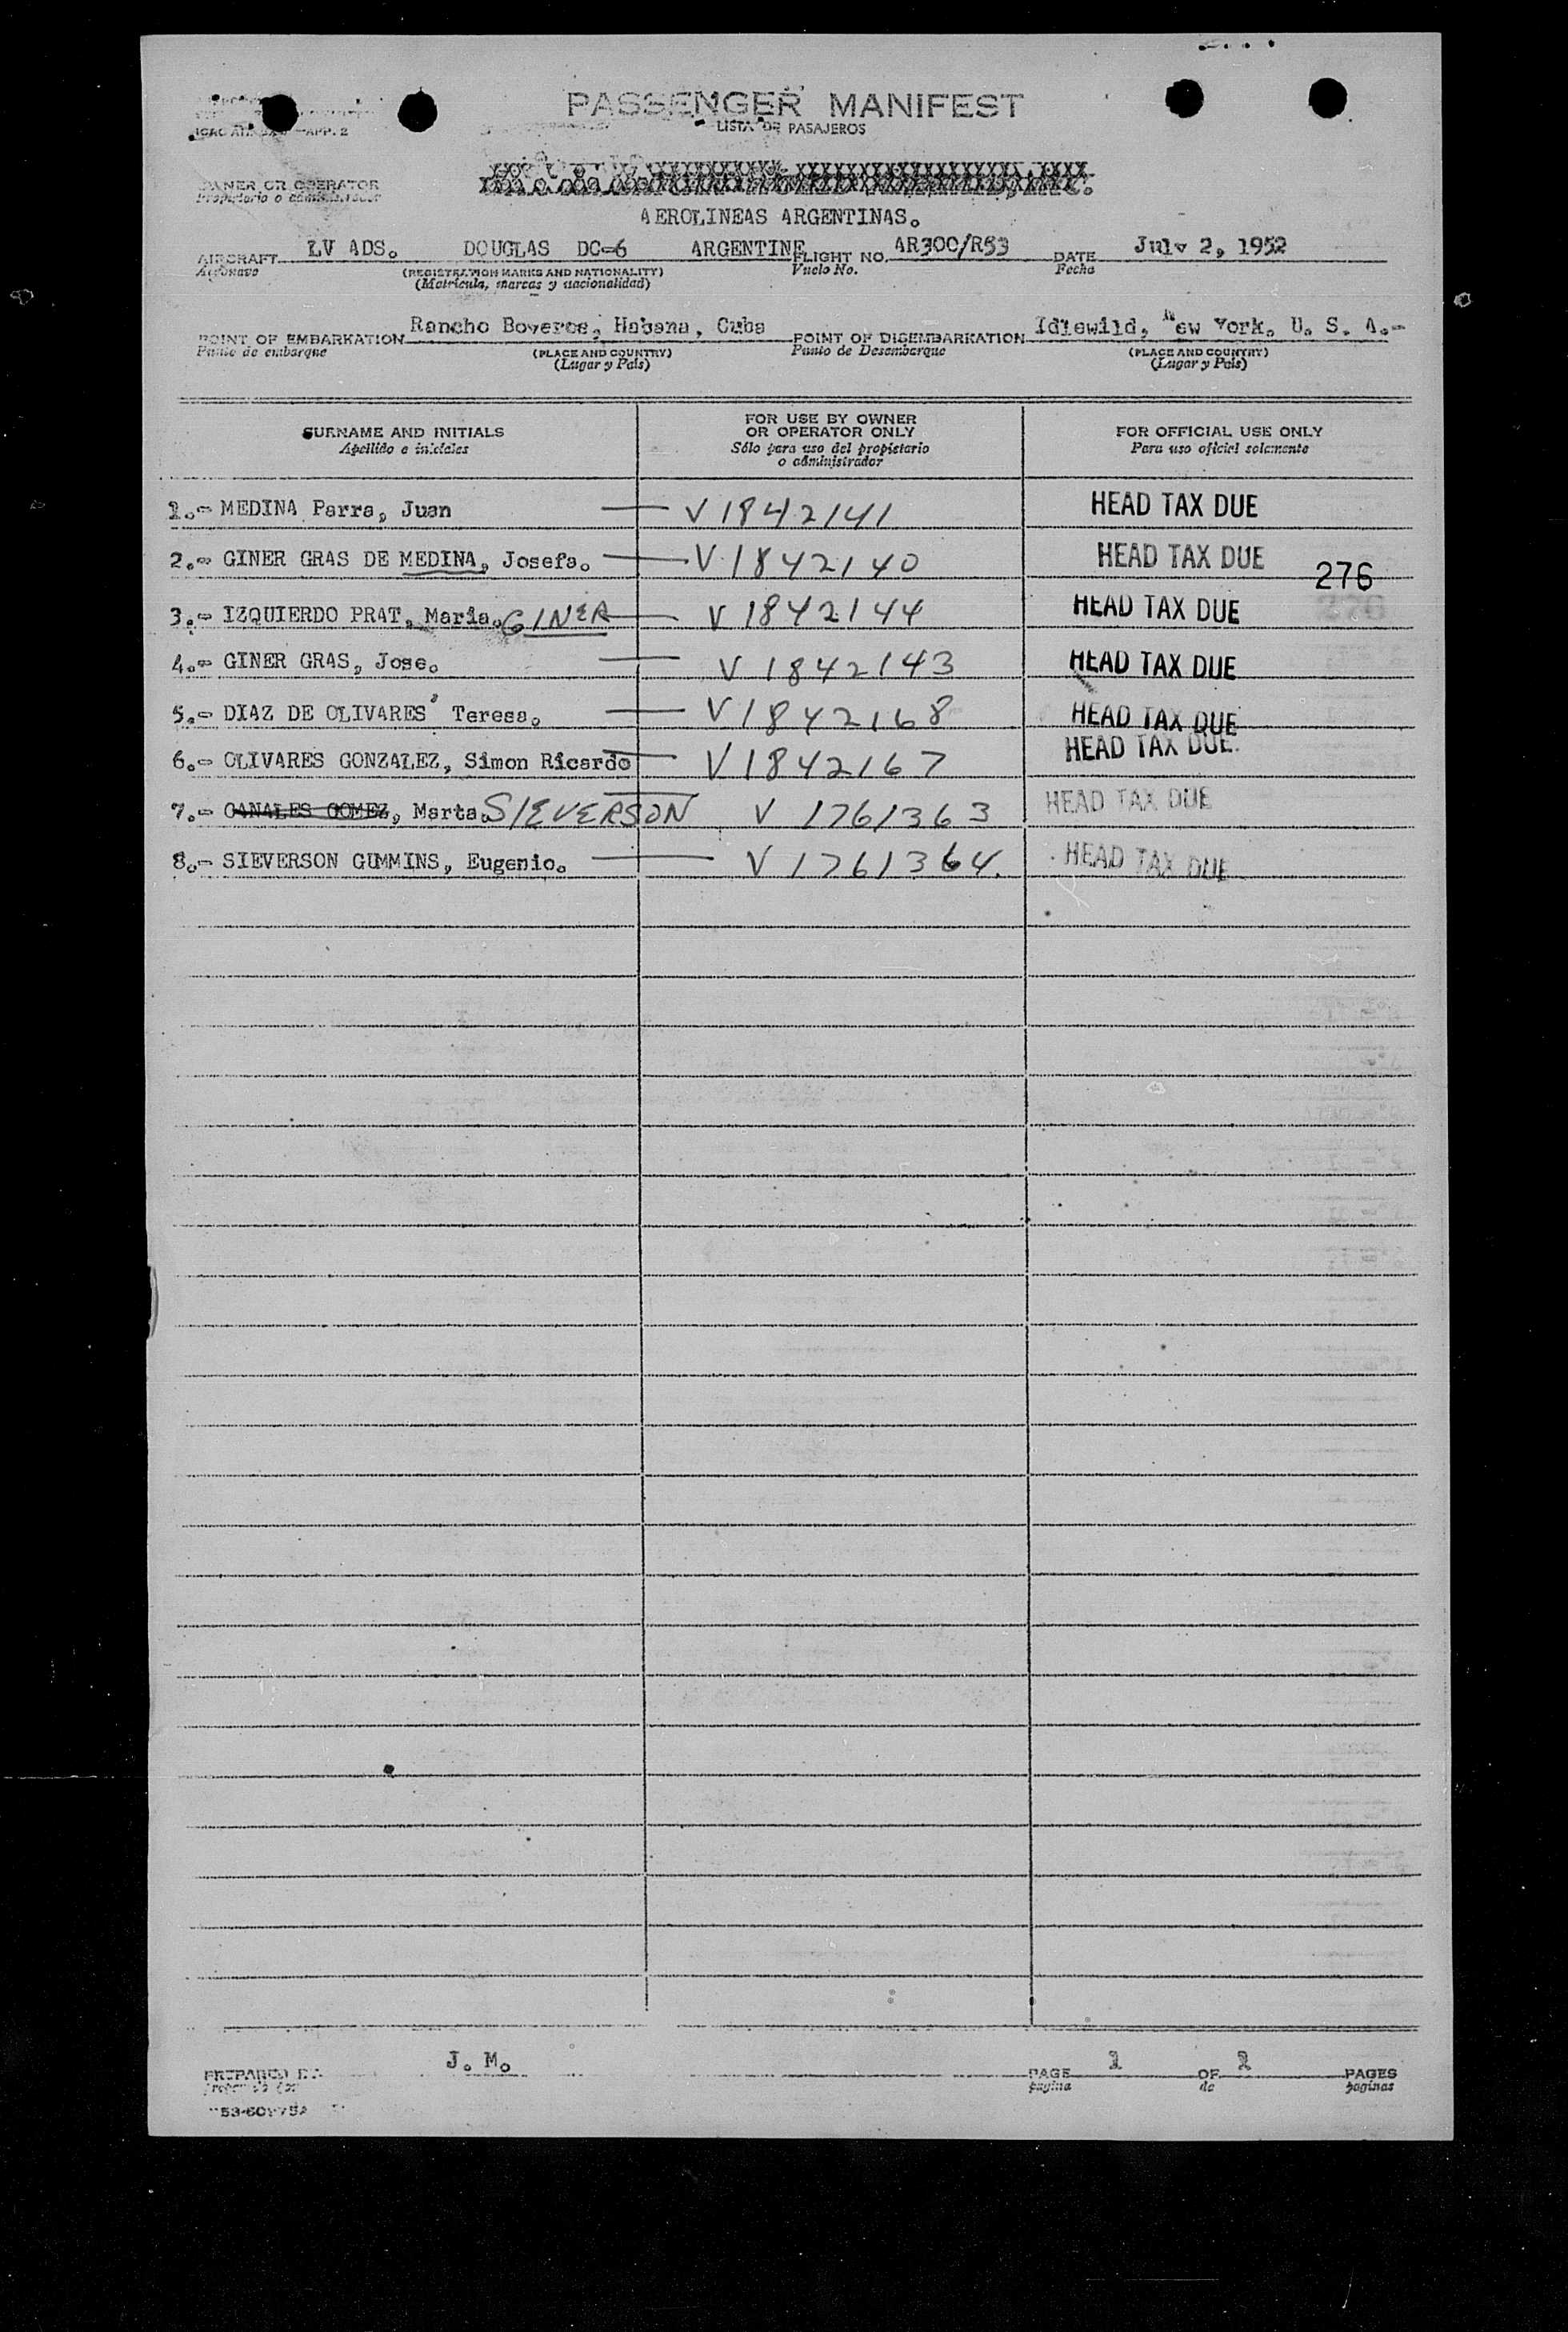 PASSENGER MANIFEST
LISTA DE PASAJEROS
ICAO APP. 2
OWNER OR OPERATOR
Propietario o administrador
AEROLINEAS ARGENTINAS.
AIRCRAFT LV ADS. DOUGLAS DC-6 ARGENTINE FLIGHT NO. AR300/R53 DATE July 2, 1952
Aeronave (REGISTRATION MARKS AND NATIONALITY) Vuelo No. Fecha
(Matrícula, marcas y nacionalidad)
POINT OF EMBARKATION Rancho Boyeros, Habana, Cuba POINT OF DISEMBARKATION Idlewild, New York, U. S. A.-
Punto de embarque (PLACE AND COUNTRY) Punto de Desembarque (PLACE AND COUNTRY)
(Lugar y País) (Lugar y País)
SURNAME AND INITIALS
Apellido e iniciales
FOR USE BY OWNER
OR OPERATOR ONLY
Sólo para uso del propietario
o administrador
FOR OFFICIAL USE ONLY
Para uso oficial solamente
1.- MEDINA Parra, Juan V 1842141 HEAD TAX DUE
2.- GINER GRAS DE MEDINA, Josefa. V 1842140 HEAD TAX DUE
276
3.- IZQUIERDO PRAT, Maria. GINER V 1842144 HEAD TAX DUE
4.- GINER GRAS, Jose. V 1842143 HEAD TAX DUE
5.- DIAZ DE OLIVARES, Teresa. V 1842168 HEAD TAX DUE
6.- OLIVARES GONZALEZ, Simon Ricardo V 1842167 HEAD TAX DUE
7.- CANALES GOMEZ, Marta. SIEVERSON V 1761363 HEAD TAX DUE
8.- SIEVERSON GUMMINS, Eugenio. V 1761364. HEAD TAX DUE
PREPARED BY J. M. PAGE 1 OF 1 PAGES
página de páginas